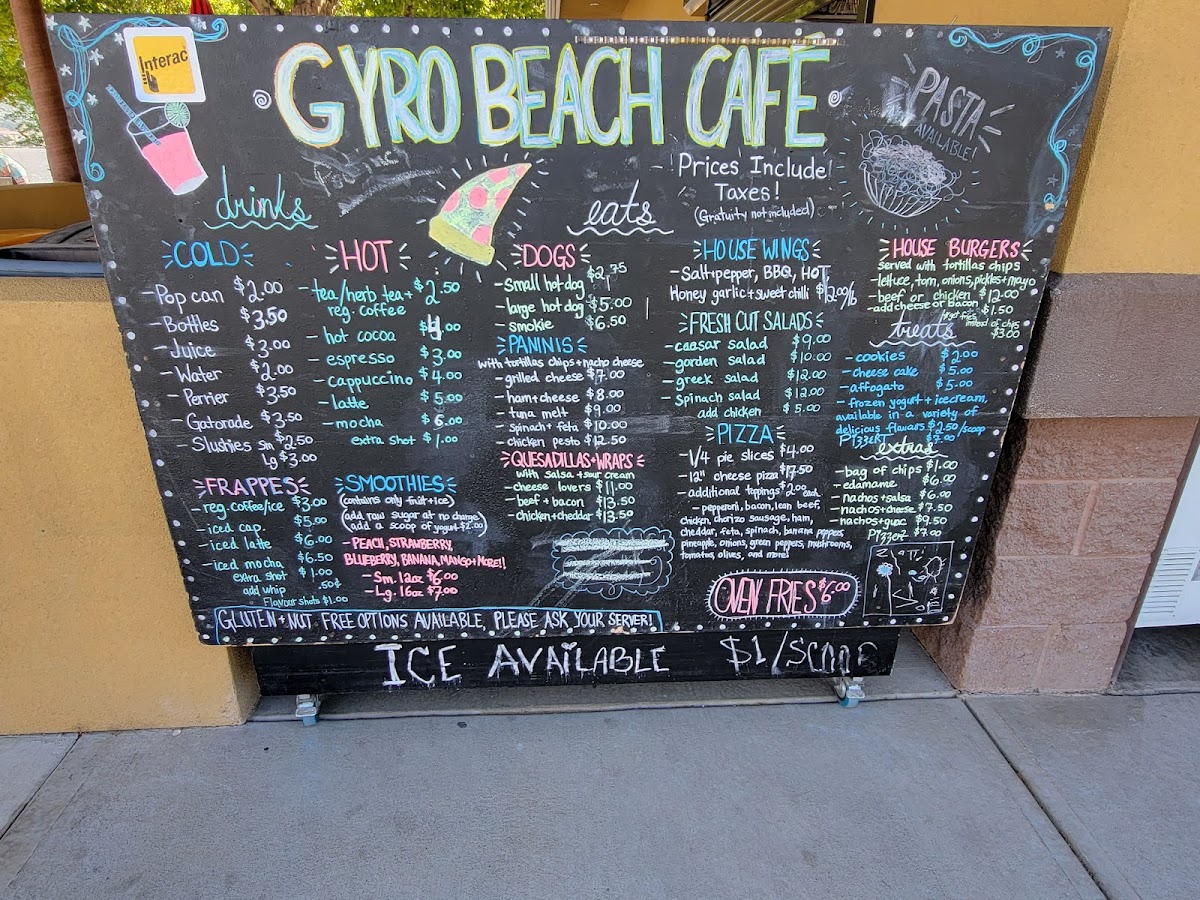 Interac
GYRO BEACH CAFÉ
PASTA
AVAILABLE!
Prices Include
Taxes!
(Gratuity not included)
drinks
COLD
-Pop can $2.00
-Bottles $3.50
-Juice $3.00
-Water $2.00
-Perrier $3.50
-Gatorade $3.50
Slushies sm $2.50
Lg $3.00
HOT
-tea/herb tea+ $2.50
reg. coffee
-hot cocoa $4.00
-espresso $3.00
-cappuccino $4.00
-latte $5.00
-mocha $6.00
extra shot $1.00
FRAPPES
-reg. coffee/ice $3.00
-iced cap. $5.00
-iced latte $6.00
-iced mocha $6.50
extra shot $1.00
add whip .50¢
Flavour shots $1.00
SMOOTHIES
(contains only fruit+ice)
(add raw sugar at no charge)
add a scoop of yogurt $2.00
-PEACH, STRAWBERRY,
BLUEBERRY, BANANA, MANGO+MORE!!
-Sm. 12oz $6.00
-Lg. 16oz $7.00
eats
DOGS
-Small hot dog $2.75
-large hot dog $5.00
-smokie $6.50
PANINIS
with tortillas chips+nacho cheese
-grilled cheese $7.00
-ham+cheese $8.00
-tuna melt $9.00
-spinach+feta $10.00
-chicken pesto $12.50
QUESADILLAS+WRAPS
with salsa+sour cream
-cheese lovers $11.00
-beef+bacon $13.50
-chicken+cheddar $13.50
HOUSE WINGS
-Salt+pepper, BBQ, HOT
Honey garlic+sweet chilli $12.00/lb
FRESH CUT SALADS
-caesar salad $9.00
-gorden salad $10.00
-greek salad $12.00
-Spinach salad $12.00
add chicken $5.00
PIZZA
-1/4 pie slices $4.00
-12" cheese pizza $17.50
-additional toppings $2.00 each
-pepperoni, bacon, lean beef,
chicken, chorizo sausage, ham,
cheddar, feta, spinach, banana peppers,
pineapple, onions, green peppers, mushrooms,
tomatos, olives, and more!
OVEN FRIES $6.00
HOUSE BURGERS
served with tortillas chips
-lettuce, tom, onions, pickles+mayo
-beef or chicken $12.00
-add cheese or bacon $1.50
fries
instead of chips
$3.00
treats
-cookies $2.00
-cheese cake $5.00
-affogato $5.00
-frozen yogurt+icecream,
available in a variety of
delicious flavours $2.50/scoop
$7.00
extras
-bag of chips $1.00
-edamame $6.00
-nachos+salsa $6.00
-nachos+cheese $7.50
-nachos+guac $9.50
$7.00
GLUTEN+NUT FREE OPTIONS AVAILABLE, PLEASE ASK YOUR SERVER!
ICE AVAILABLE $1/SCOOP